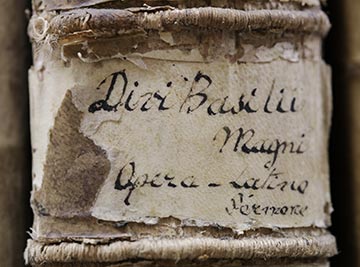 Divi Basilii
Magni
Opera - Latino
Sermone